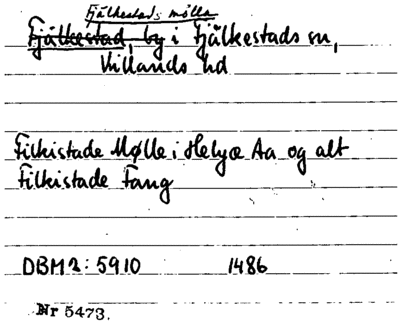 Fjälkestads mölla
Fjälkestad, by i Fjälkestads sn,
Villands hd
Filkistade Mølle i Helyæ Aa og alt
Filkistade Fang
DBM 2: 5910 1486
Nr 5473.